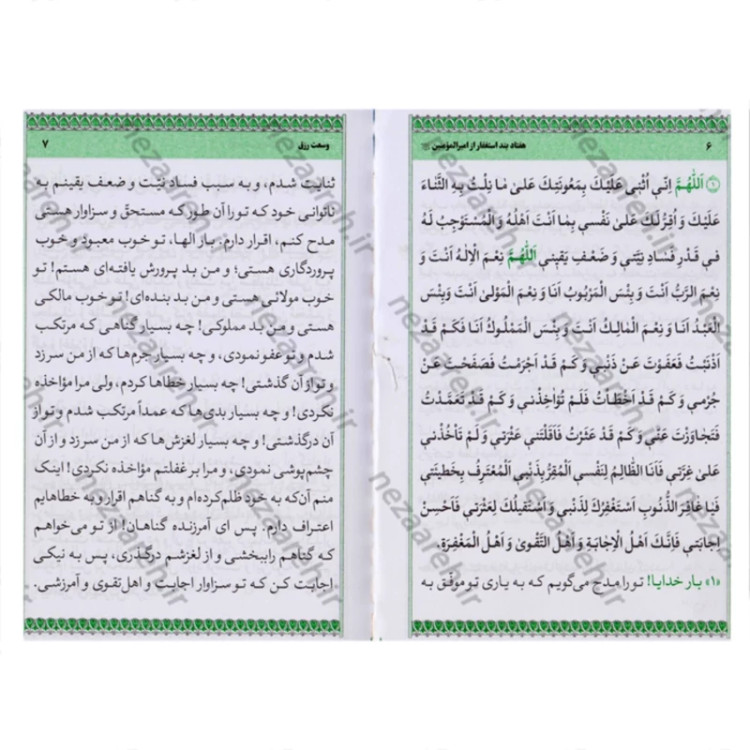 ۶
هفتاد بند استغفار از امیرالمؤمنین
۱ اَللّٰهُمَّ اِنّي اُثْني عَلَيْكَ بِمَعُونَتِكَ عَلىٰ مٰا نِلْتُ بِهِ الثَّنٰاءَ
عَلَيْكَ وَ اُقِرُّ لَكَ عَلىٰ نَفْسي بِمٰا اَنْتَ اَهْلُهُ وَ الْمُسْتَوْجِبُ لَهُ
في قَدْرِ فَسٰادِ نِيَّتي وَ ضَعْفِ يَقيني اَللّٰهُمَّ نِعْمَ الْاِلٰهُ اَنْتَ وَ
نِعْمَ الرَّبُّ اَنْتَ وَ بِئْسَ الْمَرْبُوبُ اَنَا وَ نِعْمَ الْمَوْلىٰ اَنْتَ وَ بِئْسَ
الْعَبْدُ اَنَا وَ نِعْمَ الْمٰالِكُ اَنْتَ وَ بِئْسَ الْمَمْلُوكُ اَنَا فَكَمْ قَدْ
اَذْنَبْتُ فَعَفَوْتَ عَنْ ذَنْبي وَ كَمْ قَدْ اَجْرَمْتُ فَصَفَحْتَ عَنْ
جُرْمي وَ كَمْ قَدْ اَخْطَأْتُ فَلَمْ تُؤٰاخِذْني وَ كَمْ قَدْ تَعَمَّدْتُ
فَتَجٰاوَزْتَ عَنّي وَ كَمْ قَدْ عَثَرْتُ فَاَقَلْتَني عَثْرَتي وَ لَمْ تَأْخُذْني
عَلىٰ غِرَّتي فَاَنَا الظّٰالِمُ لِنَفْسي اَلْمُقِرُّ بِذَنْبي اَلْمُعْتَرِفُ بِخَطيئَتي
فَيٰا غٰافِرَ الذُّنُوبِ اَسْتَغْفِرُكَ لِذَنْبي وَ اَسْتَقيلُكَ لِعَثْرَتي فَاَحْسِنْ
اِجٰابَتي فَاِنَّكَ اَهْلُ الْاِجٰابَةِ وَ اَهْلُ التَّقْوىٰ وَ اَهْلُ الْمَغْفِرَةِ.
«۱» بار خدایا! تو را مدح می‌گویم که به یاری تو موفق به
وسعت رزق
۷
ثنایت شدم، و به سبب فساد نیّت و ضعف یقینم به
ناتوانی خود که تو را آن طور که مستحقّ و سزاوار هستی
مدح کنم، اقرار دارم. بار الها، تو خوب معبود و خوب
پروردگاری هستی؛ و من بد پرورش یافته‌ای هستم! تو
خوب مولائی هستی و من بد بنده‌ای! تو خوب مالکی
هستی و من بد مملوکی! چه بسیار گناهی که مرتکب
شدم و تو عفو نمودی، و چه بسیار جرم‌ها که از من سر زد
و تو از آن گذشتی! چه بسیار خطاها کردم، ولی مرا مؤاخذه
نکردی! و چه بسیار بدی‌ها که عمداً مرتکب شدم و تو از
آن درگذشتی! و چه بسیار لغزش‌ها که از من سر زد و از آن
چشم‌پوشی نمودی، و مرا بر غفلتم مؤاخذه نکردی! اینک
منم آن‌که به خود ظلم کرده‌ام و به گناهم اقرار و به خطاهایم
اعتراف دارم. پس ای آمرزنده گناهان! از تو می‌خواهم
که گناهم را ببخشی و از لغزشم درگذری، پس به نیکی
اجابت کن که تو سزاوار اجابت و اهل تقوی و آمرزشی.
nezaareh.ir